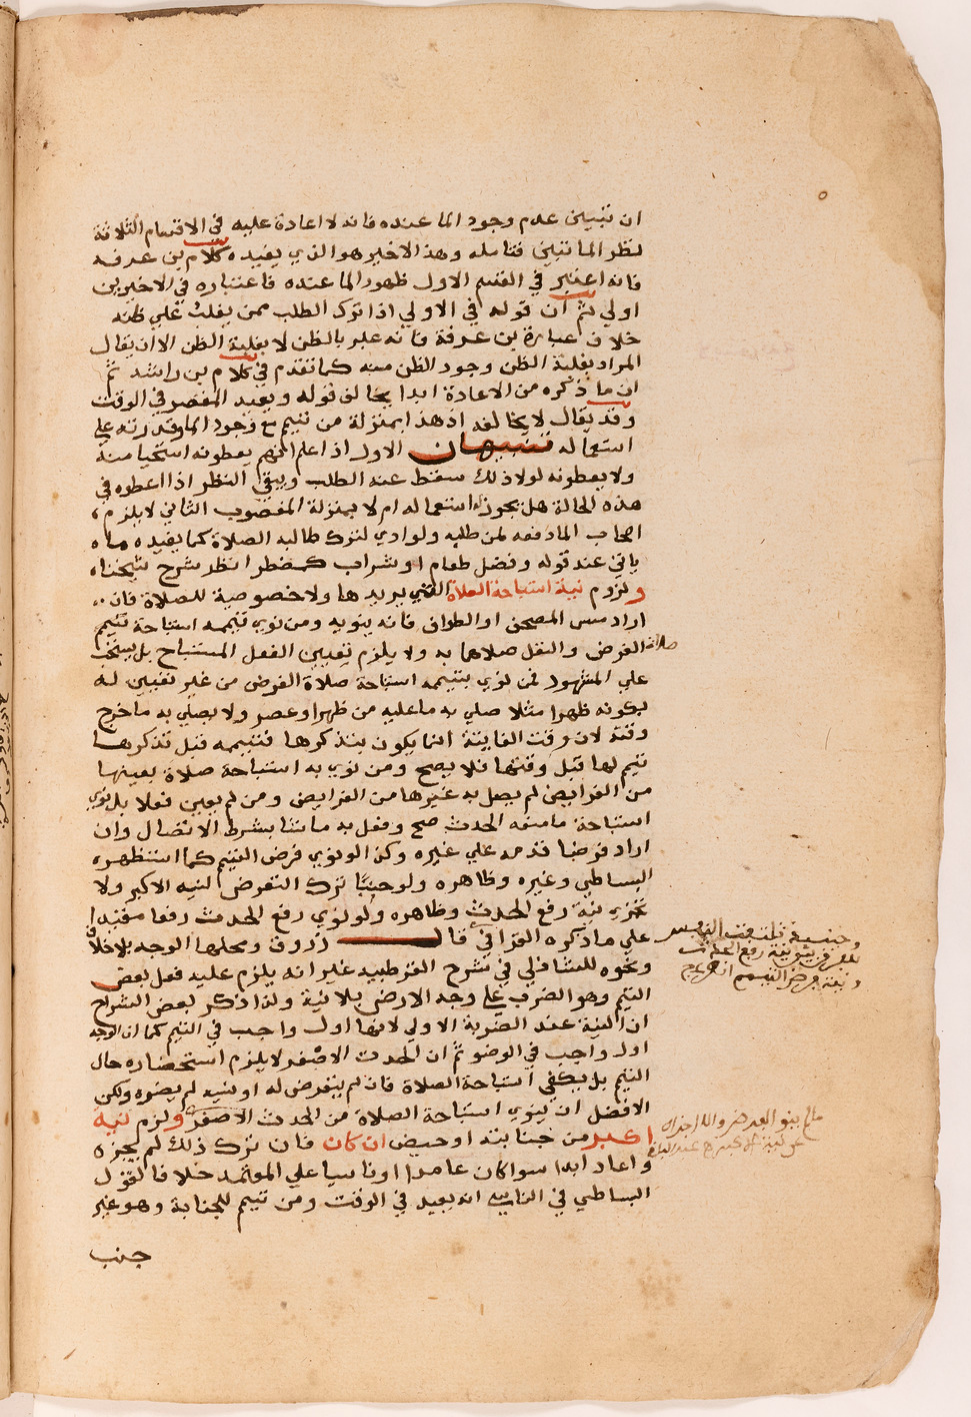 ان تبين عدم وجود الما عنده فانه لا اعادة عليه في الاقسام الثلاثة
لنظر الما تبين فتامله وهذا الاخير هو الذي يفيده كلام بن عرفه
فانه اعتبر في القسم الاول ظهور الما عنده فاعتباره في الاخيرين
اولي ثم ان قوله في الاولي اذا ترك الطلب ممن يغلب علي ظنه
خلاف عبارة بن عرفة فانه عبر بالظن لا بغلبة الظن الا ان يقال
المراد بغلبة الظن وجود الظن منه كما تقدم في كلام بن راشد ثم
ان ما ذكره من الاعادة ابدا يخالف قوله ويعيد المقصر في الوقت
وقد يقال لا يخالفه اذ هذا بمنزلة من تيمم مع وجود الما وقدرته علي
استعماله تنبيهان الاول اذا علم انهم يعطونه استحيا منه
ولا يعطونه لولا ذلك سقط عنه الطلب ويبقي النظر اذا اعطوه في
هذه الحالة هل يجوز له استعماله ام لا بمنزلة المغصوب الثاني لا يلزم
اصحاب الما دفعه لمن طلبه ولو ادي لترك طالبه الصلاة كما يفيده ما
ياتي عند قوله وفضل طعام او شراب كمضطر انظر شرح شيخنا
ولزوم نية استباحة الصلاة التي يريدها ولا خصوصية للصلاة فان
اراد مس المصحف او الطواف فانه ينويه ومن نوي بتيممه استباحة تيمم
صلاة الفرض والنفل صلاهما به ولا يلزم تعيين الفعل المستباح بل يستحب
علي المشهور فمن نوي بتيممه استباحة صلاة الفرض من غير تعيين له
بكونه ظهرا مثلا صلي به ما عليه من ظهر او عصر ولا يصلي به ما خرج
وقته لان وقت الفايتة انما يكون بتذكرها فتيممه قبل تذكرها
تيمم لها قبل وقتها فلا يصح ومن نوي به استباحة صلاة بعينها
من الفرايض لم يصل به غيرها من الفرايض ومن لم يعين فعلا بل نوي
استباحة ما منعه الحدث صح وفعل به ما شا بشرط الاتصال وان
اراد فرضا قدمه علي غيره وكذا لو نوي فرض التيمم كما استظهره
البساطي وغيره وظاهره ولو جنبًا ترك التعرض لنية الاكبر ولا
تجزي نية رفع الحدث وظاهره ولو نوي رفع الحدث رفعا مقيدا
علي ما ذكره القرافي قال زروق ومحلها الوجه بلا خلاف
ونحوه للشاذلي في شرح القرطبيه غير انه يلزم عليه فعل بعض
التيمم وهو الضرب علي وجه الارض بلا نية ولذا ذكر بعض الشراح
ان النية عند الضربة الاولي لانها اول واجب في التيمم كما ان الوجه
اول واجب في الوضو ثم ان الحدث الاصغر لا يلزم استحضاره حال
التيمم بل يكفي استباحة الصلاة فان لم يتعرض له او نسيه لم يضره ولكن
الافضل ان ينوي استباحة الصلاة من الحدث الاصغر ولزم نية
اكبر من جنابة او حيض ان كان فان ترك ذلك لم يجزه
واعاد ابدا سوا كان عامدا او ناسيا علي المعتمد خلافا لقول
البساطي في الناسي انه يعيد في الوقت ومن تيمم للجنابة وهو غير
جنب